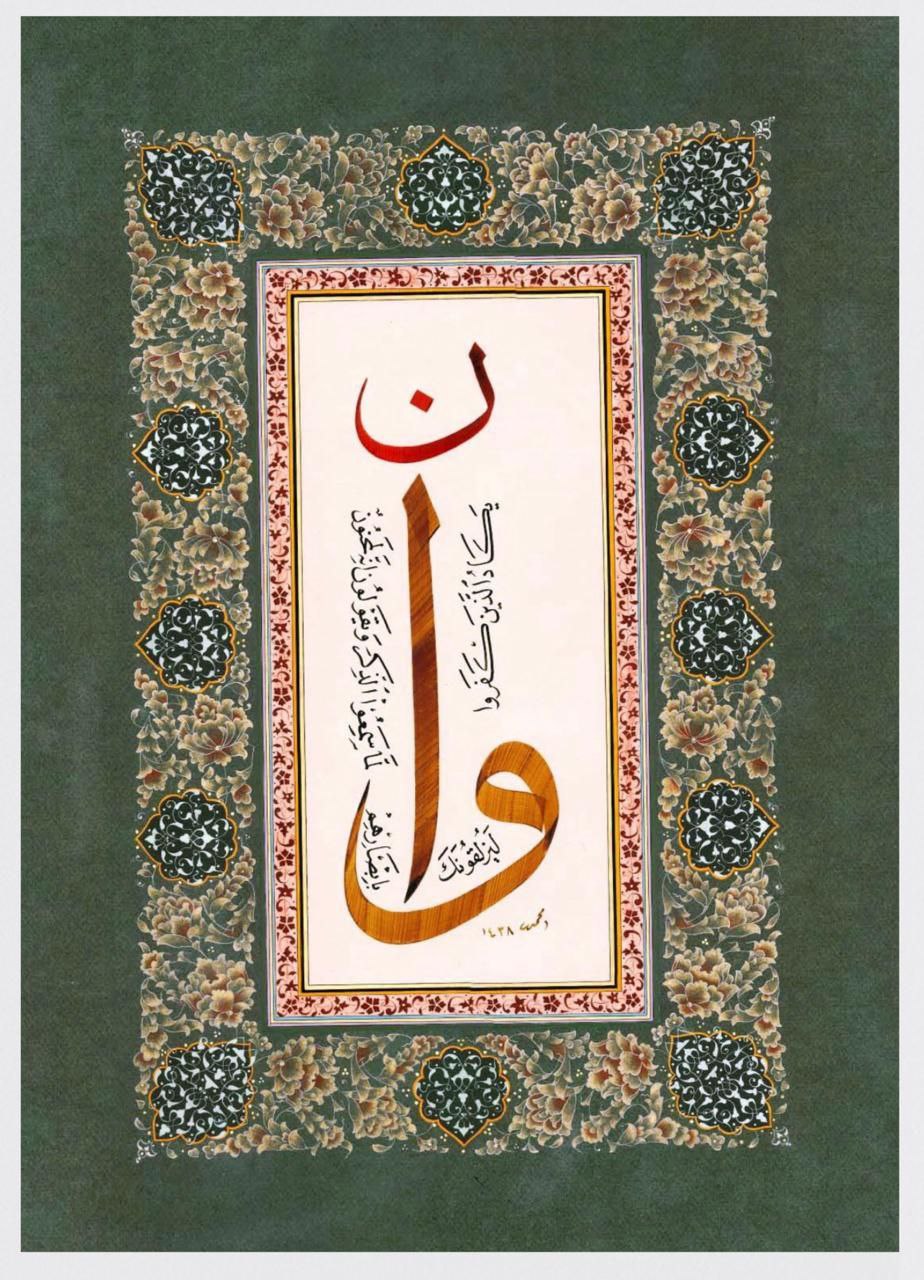 وان
يَكَادُ الَّذِينَ كَفَرُوا
لَيُزْلِقُونَكَ
بِأَبْصَارِهِمْ
لَمَّا سَمِعُوا الذِّكْرَ وَيَقُولُونَ إِنَّهُ لَمَجْنُونٌ
١٤٣٨